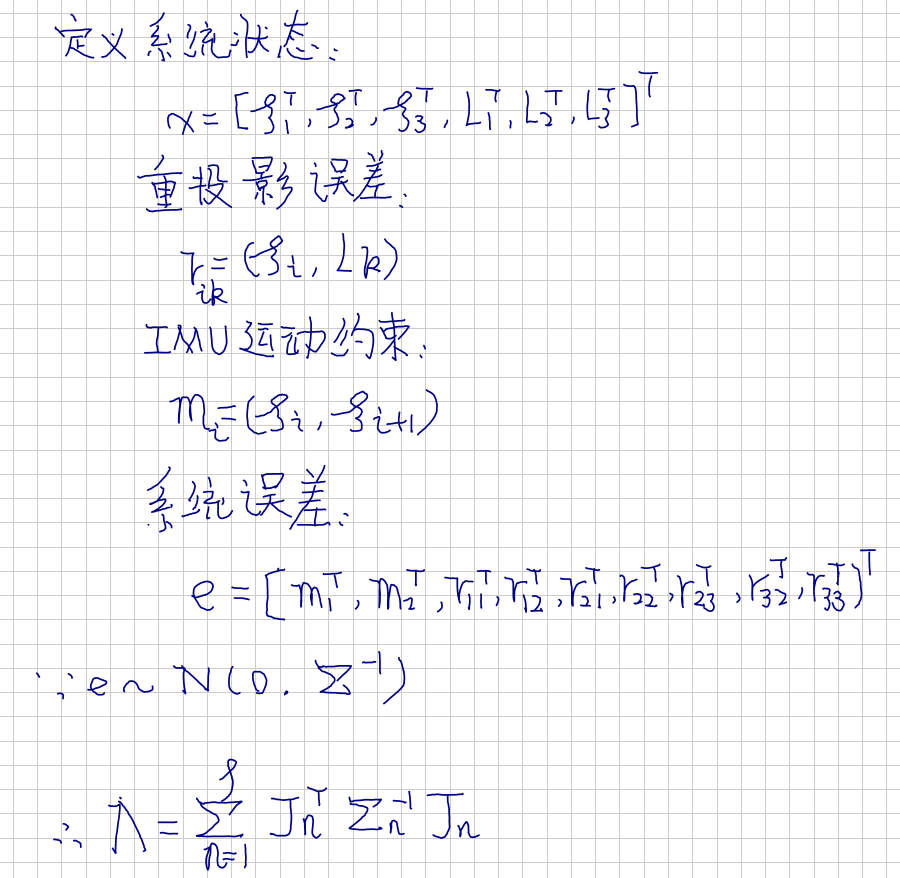 定义系统状态:
x = [ξ₁ᵀ, ξ₂ᵀ, ξ₃ᵀ, L₁ᵀ, L₂ᵀ, L₃ᵀ]ᵀ
重投影误差:
r_ik = (ξ_i, L_k)
IMU运动约束:
m_i = (ξ_i, ξ_{i+1})
系统误差:
e = [m₁ᵀ, m₂ᵀ, r₁₁ᵀ, r₁₂ᵀ, r₂₁ᵀ, r₂₂ᵀ, r₂₃ᵀ, r₃₂ᵀ, r₃₃ᵀ)ᵀ
∵ e ~ N(0. Σ⁻¹)
∴ Λ = Σ_{n=1}^{9} J_nᵀ Σ_n⁻¹ J_n